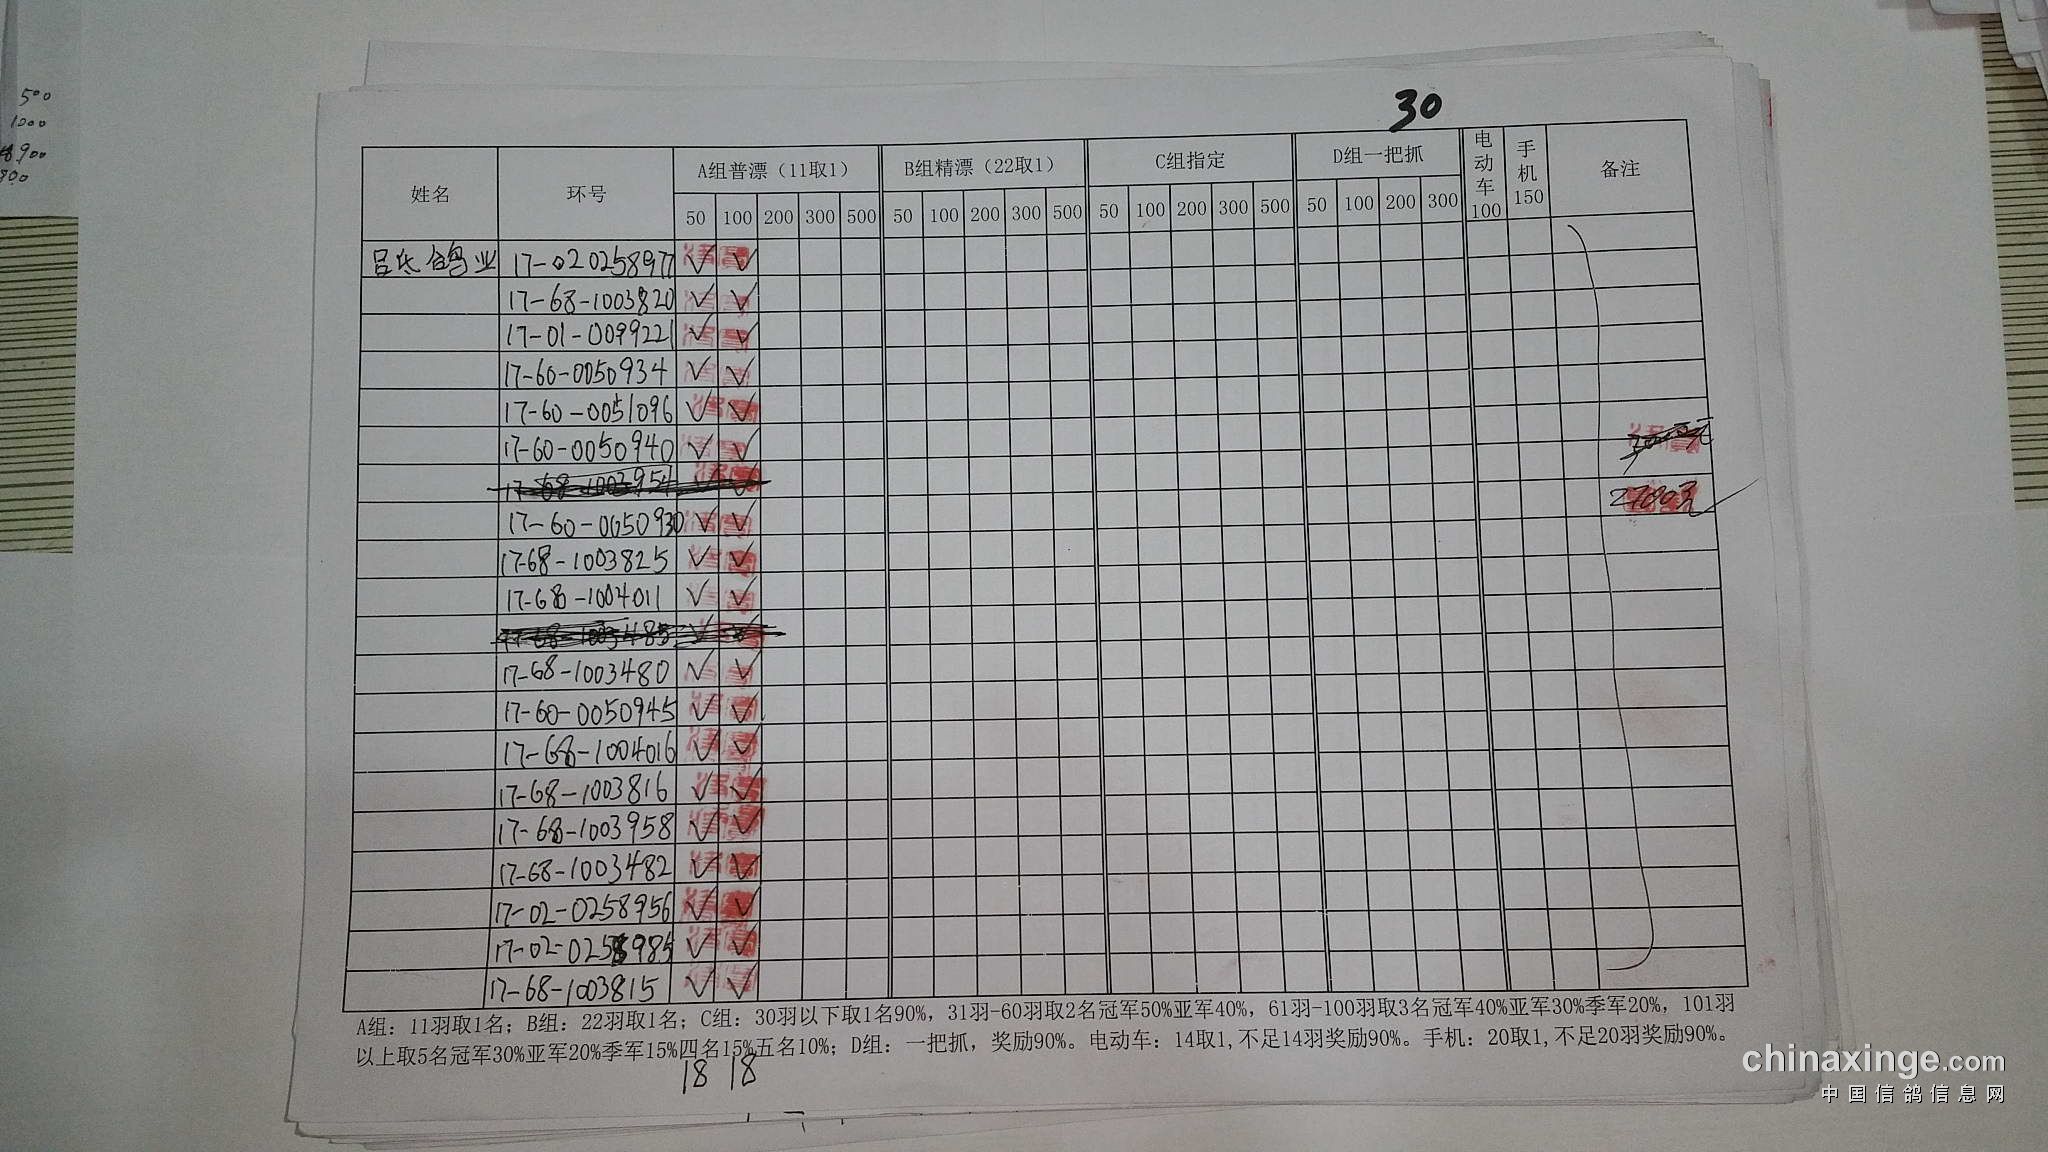 500
1000
900
30
姓名 环号 A组普漂（11取1） B组精漂（22取1） C组指定 D组一把抓 电动车100 手机150 备注
50 100 200 300 500 50 100 200 300 500 50 100 200 300 500 50 100 200 300
吕氏鸽业 17-020258977 √ √
17-68-1003820 √ √
17-01-0099221 √ √
17-60-0050934 √ √
17-60-0051096 √ √
17-60-0050940 √ √
17-68-1003954 √ √
17-60-0050930 √ √
2700元
17-68-1003825 √ √
17-68-1004011 √ √
17-68-1003485 √ √
17-68-1003480 √ √
17-60-0050945 √ √
17-68-1004016 √ √
17-68-1003816 √ √
17-68-1003958 √ √
17-68-1003482 √ √
17-02-0258956 √ √
17-02-0258985 √ √
17-68-1003815 √ √
A组：11羽取1名；B组：22羽取1名；C组：30羽以下取1名90%，31羽-60羽取2名冠军50%亚军40%，61羽-100羽取3名冠军40%亚军30%季军20%，101羽
以上取5名冠军30%亚军20%季军15%四名15%五名10%；D组：一把抓，奖励90%。电动车：14取1,不足14羽奖励90%。手机：20取1,不足20羽奖励90%。
18 18
chinaxinge.com
中国信鸽信息网